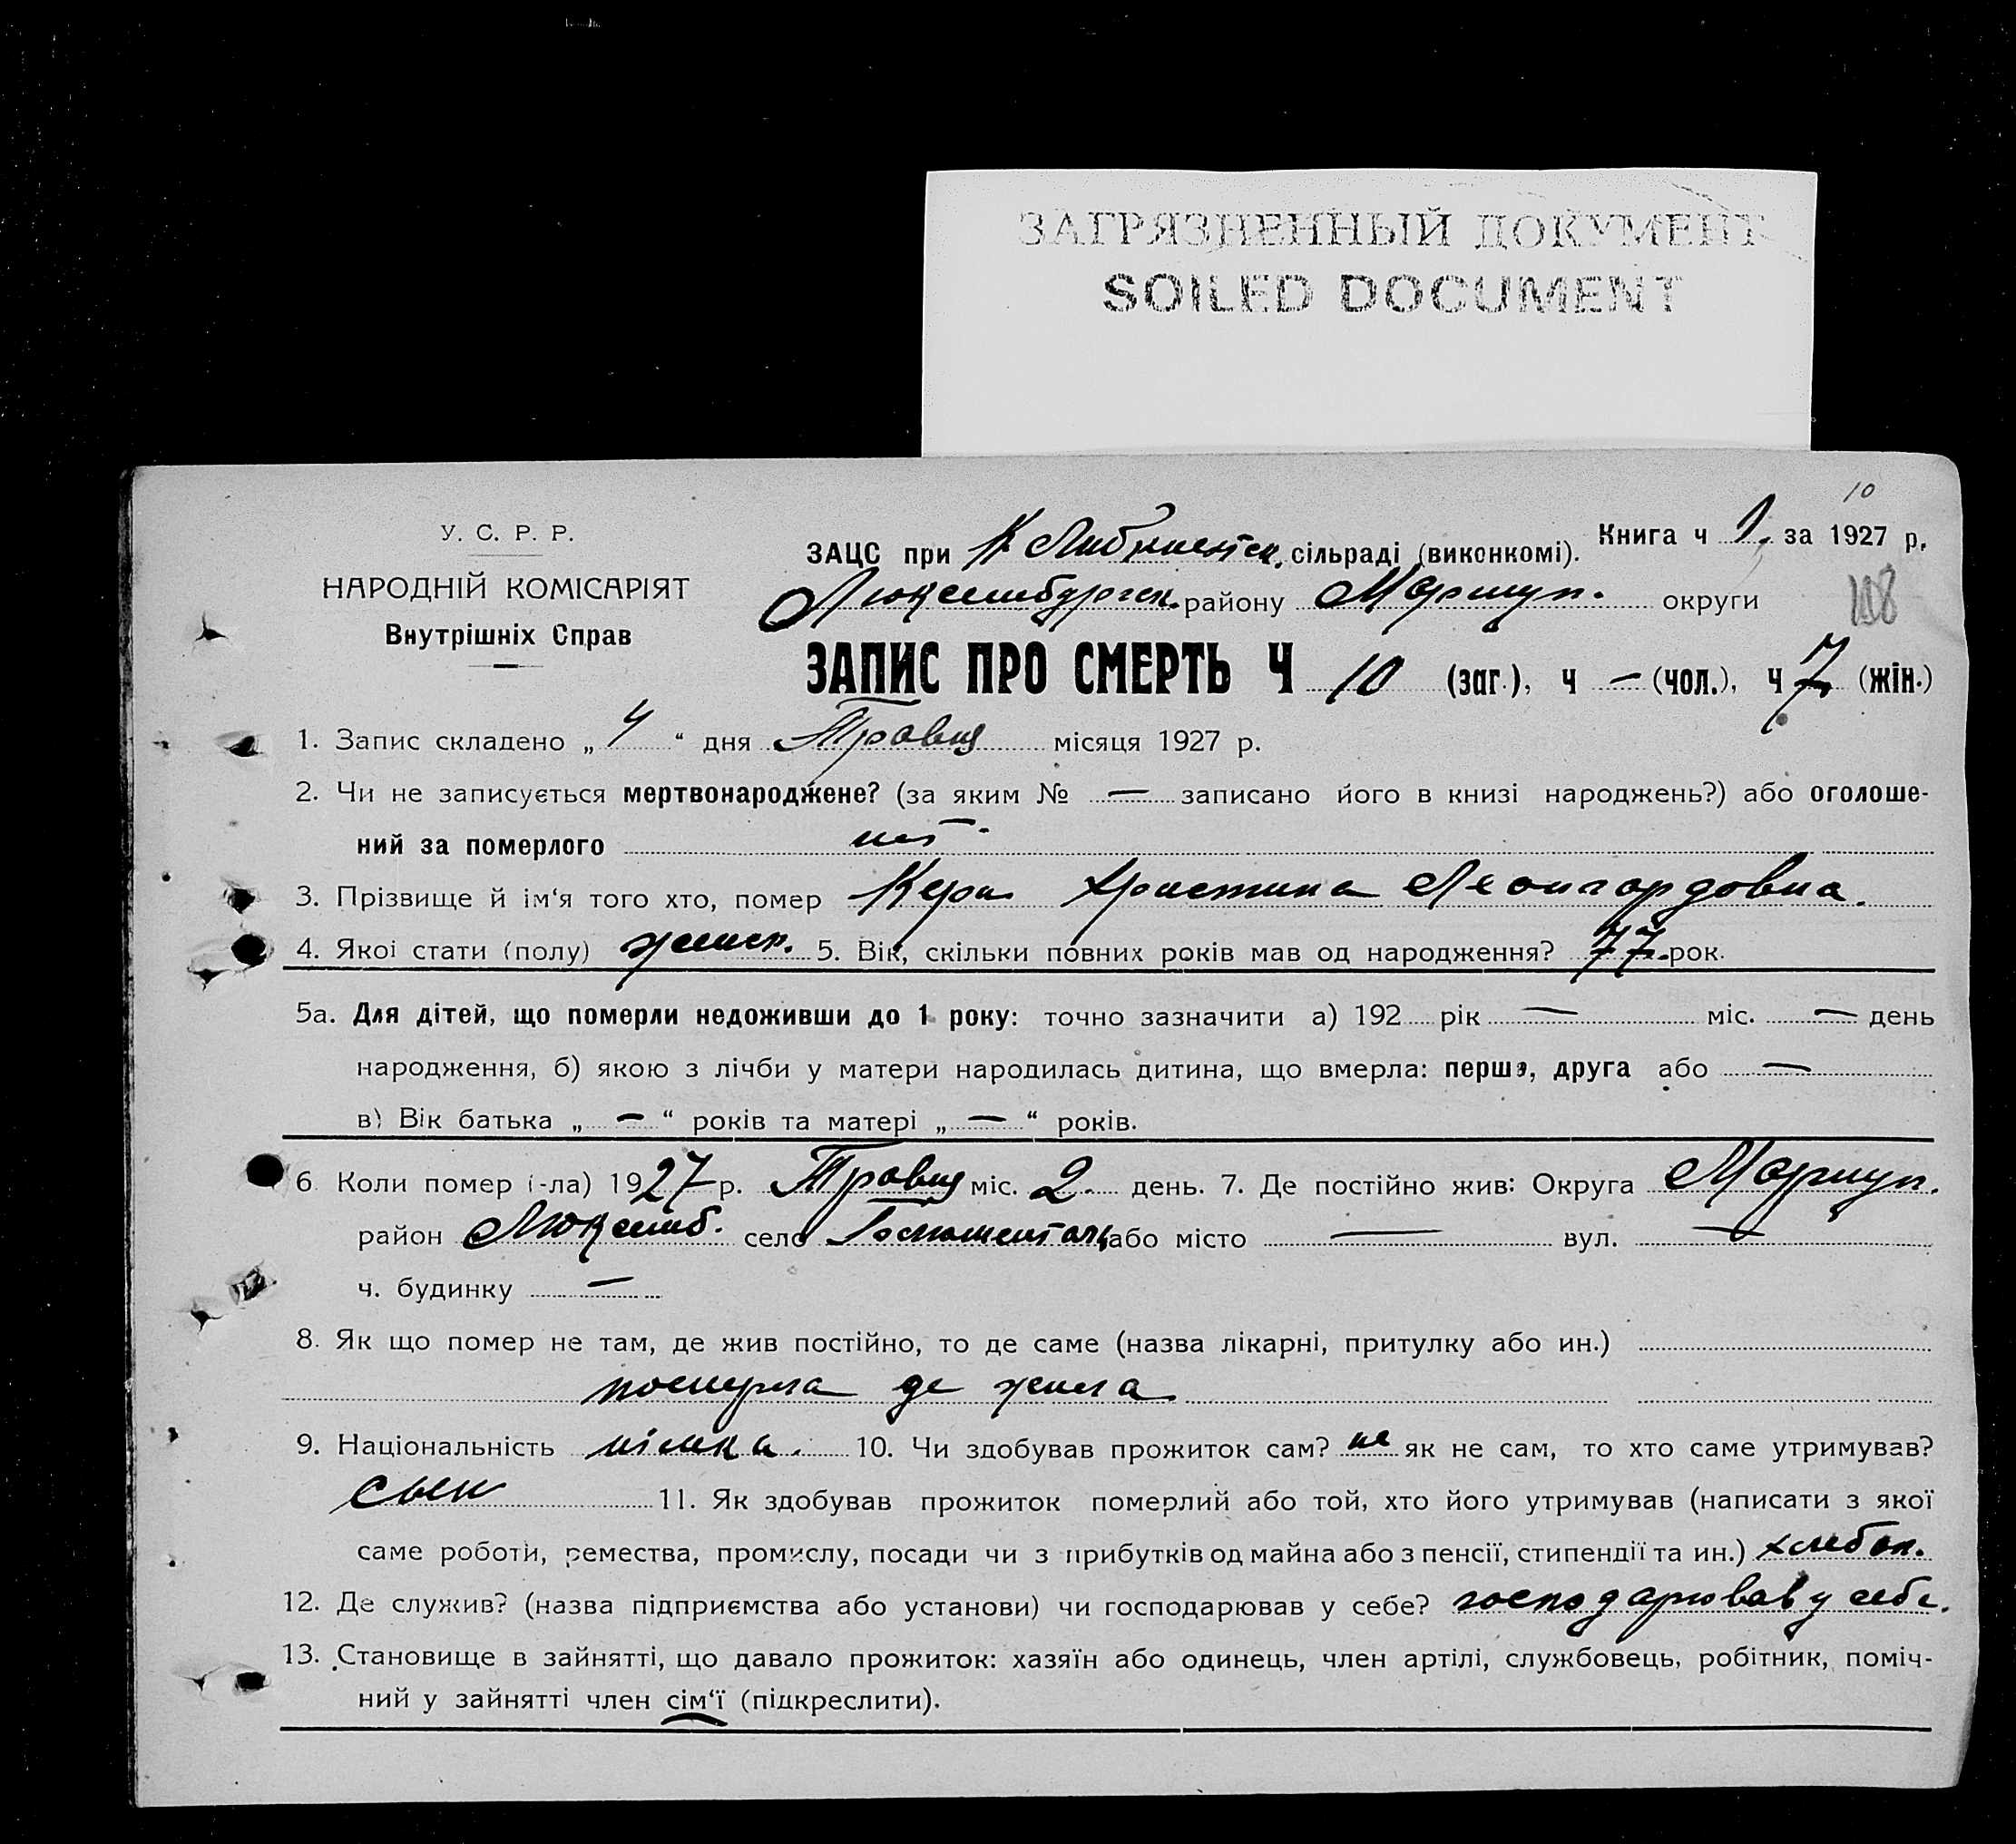 ЗАГРЯЗНЕННЫЙ ДОКУМЕНТ
SOILED DOCUMENT
10
У. С. Р. Р.
НАРОДНІЙ КОМІСАРІЯТ
Внутрішніх Справ
ЗАЦС при К сільраді (виконкомі). Книга ч 1. за 1927 р.
Люксембургск. району Маріуп. округи
108
ЗАПИС ПРО СМЕРТЬ Ч 10 (заг.), ч — (чол.), ч 7 (жін.)
1. Запис складено „ 4 “ дня Травня місяця 1927 р.
2. Чи не записується мертвонароджене? (за яким № — записано його в книзі народжень?) або оголоше-
ний за померлого нет
3. Прізвище й ім‘я того хто, помер Керн Христина Леонгардовна.
4. Якоі стати (полу) женск. 5. Вік, скільки повних років мав од народження? 77 рок.
5а. Для дітей, що померли недоживши до 1 року: точно зазначити а) 192 рік — міс. — день
народження, б) якою з лічби у матери народилась дитина, що вмерла: перша, друга або —
в) Вік батька „ — “ років та матері „ — “ років.
6. Коли помер (-ла) 1927 р. Травня міс. 2. день. 7. Де постійно жив: Округа Маріуп.
район Люксемб. село або місто — вул. —
ч. будинку —
8. Як що помер не там, де жив постійно, то де саме (назва лікарні, притулку або ин.)
померла де жила
9. Національність німка. 10. Чи здобував прожиток сам? не як не сам, то хто саме утримував?
сын 11. Як здобував прожиток померлий або той, хто його утримував (написати з якої
саме роботи, ремества, промислу, посади чи з прибутків од майна або з пенсії, стипендії та ин.) хлебоп.
12. Де служив? (назва підприємства або установи) чи господарював у себе? господарював у себе.
13. Становище в зайнятті, що давало прожиток: хазяїн або одинець, член артілі, службовець, робітник, поміч-
ний у зайнятті член сім‘ї (підкреслити).